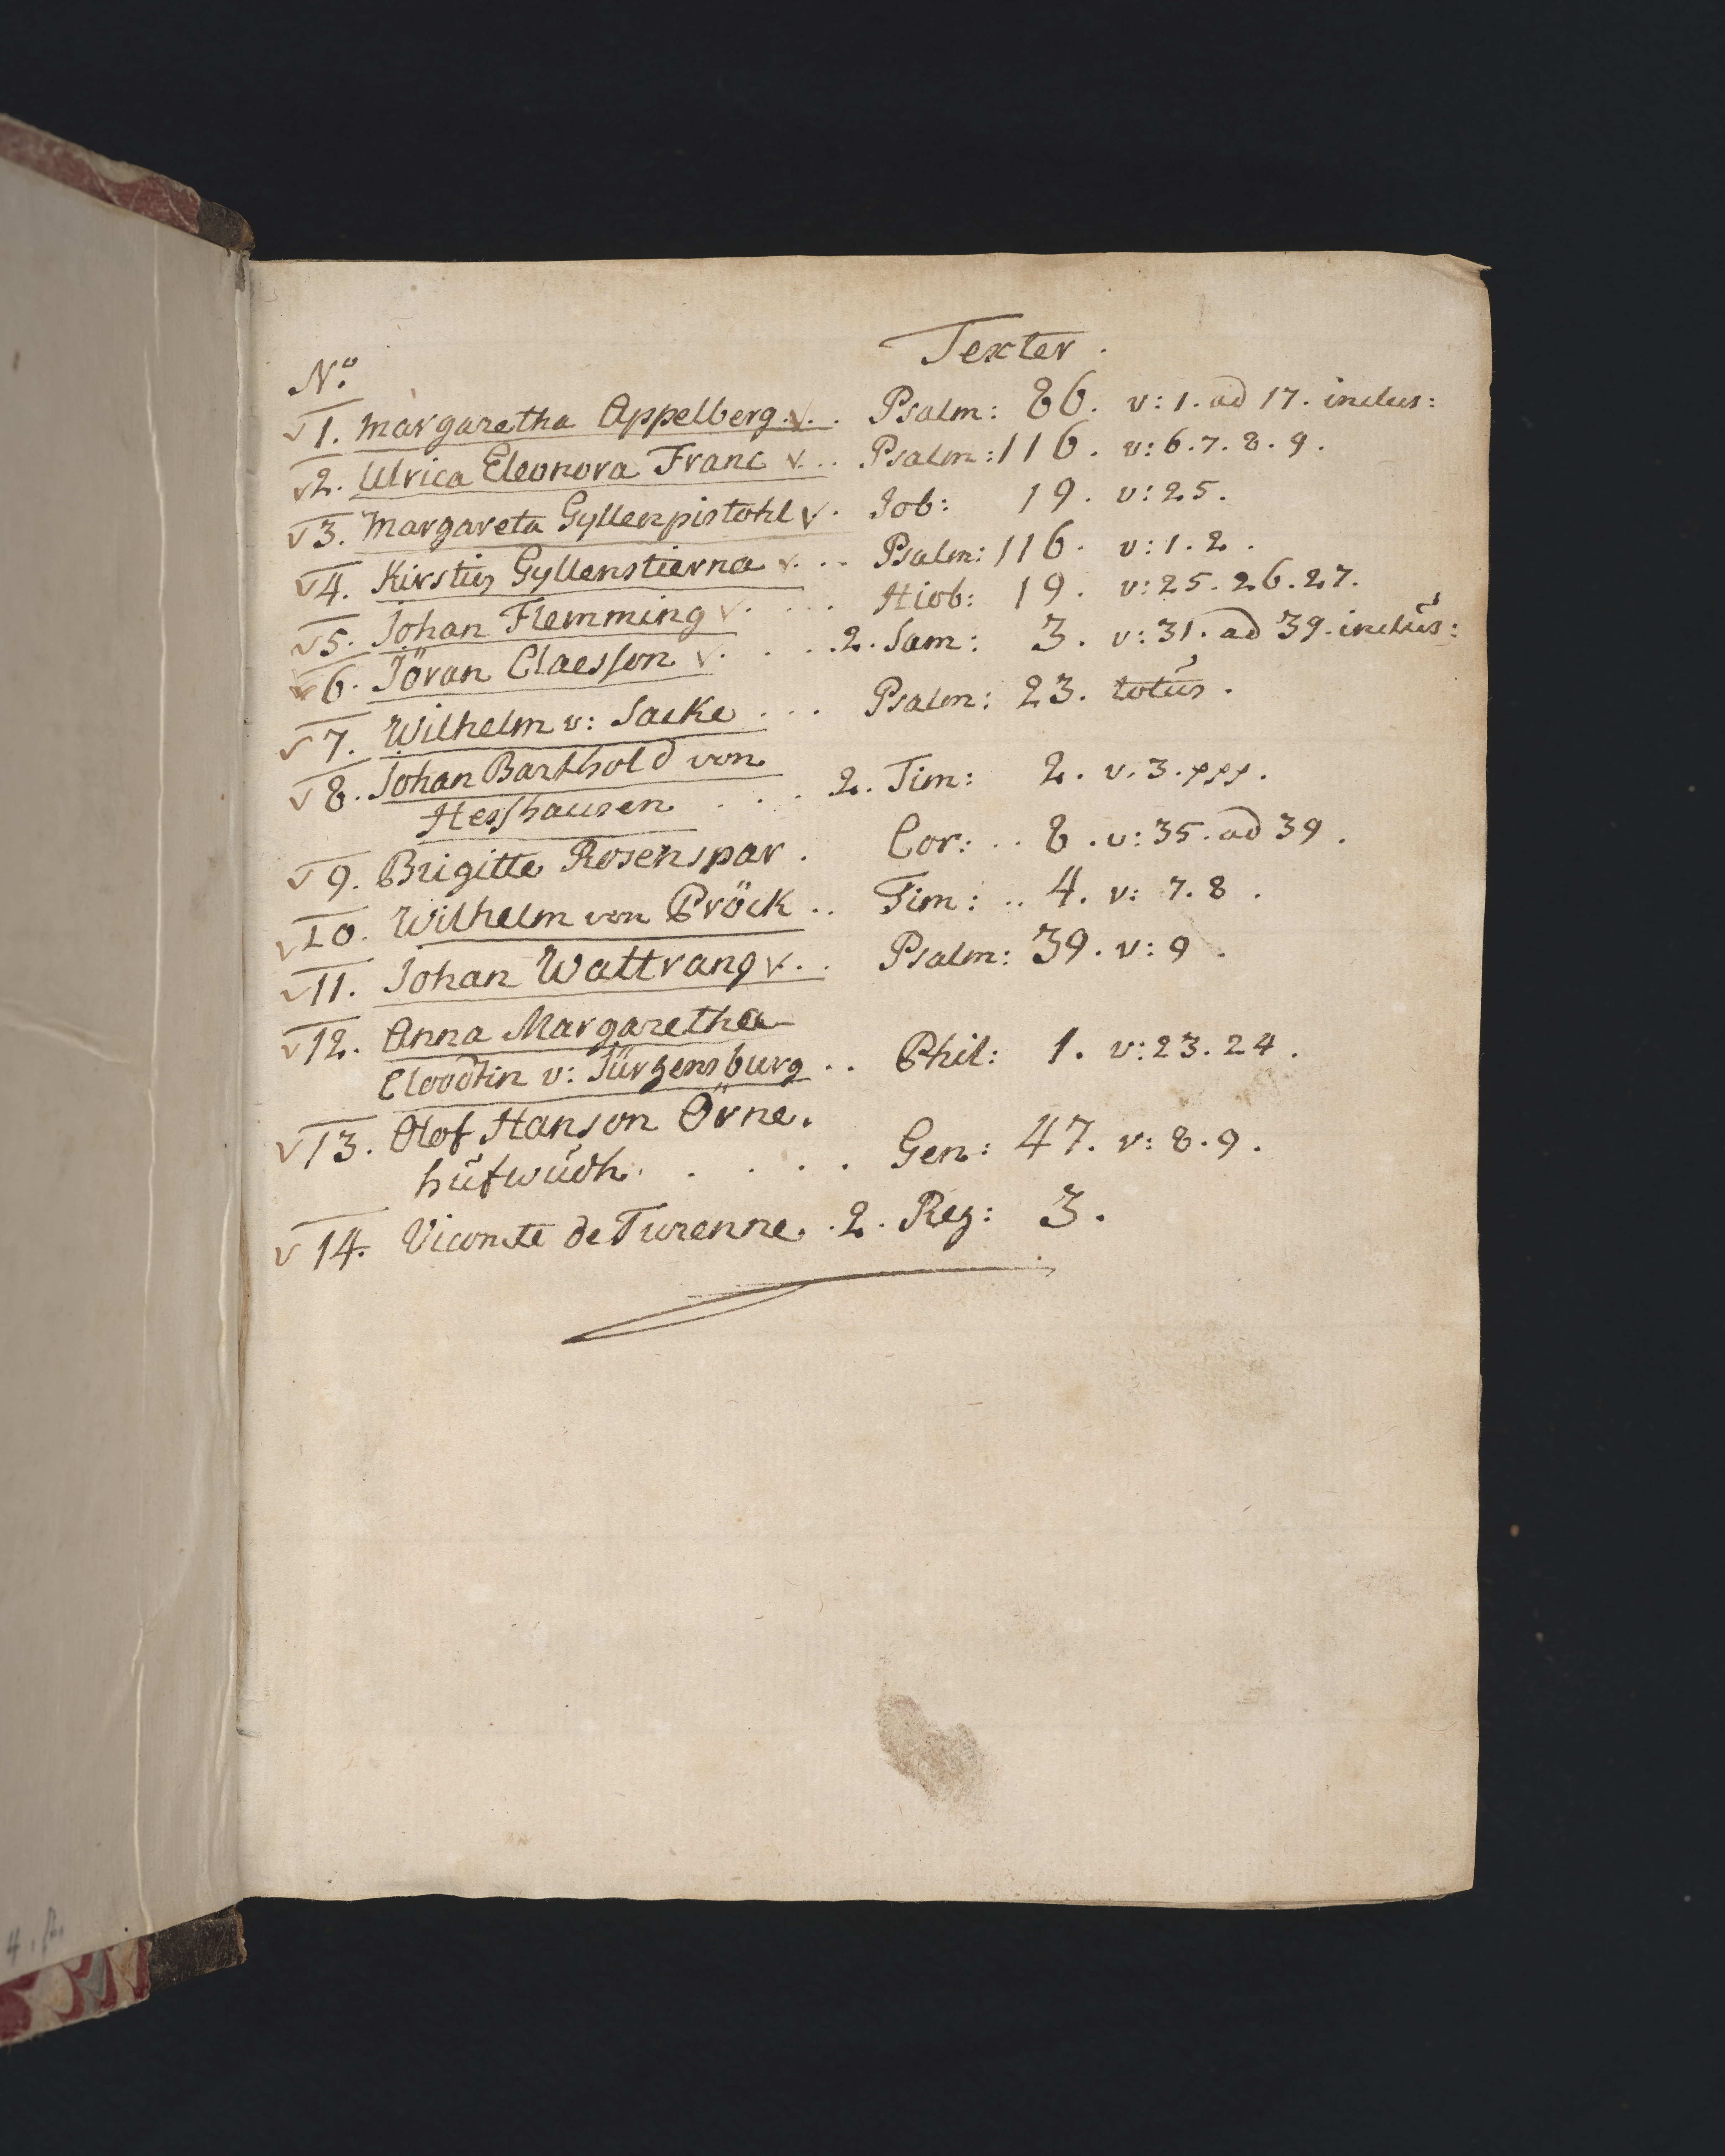 Texter.
No
√1. Margaretha Appelberg. v. . Psalm: 86. v: 1. ad 17. inclus:
√2. Ulrica Eleonora Franc v. . . Psalm: 116. v: 6. 7. 8. 9.
√3. Margareta Gyllenpistohl v. Job: 19. v: 25.
√4. Kirstin Gyllenstierna v. . . Psalm: 116. v: 1. 2.
√5. Johan Flemming v. . . . Hiob: 19. v: 25. 26. 27.
√6. Jöran Claesson v. . . . 2. Sam: 3. v: 31. ad 39. inclūs:
√7. Wilhelm v: Sacke . . . Psalm: 23. totūs.
√8. Johan Barthold von
Hesshausen . . . 2. Tim: 2. v. 3. ppp.
√9. Brigitte Rosenspar. Cor: . . 8. v: 35. ad 39.
√10. Wilhelm von Pröck . . Tim: . . 4. v: 7. 8.
√11. Johan Wattrang v. . Psalm: 39. v: 9.
√12. Anna Margaretha
Cloodtin v: Jürgensburg . . Phil: 1. v: 23. 24.
√13. Olof Hanson Örne.
hūfwūdh. . . . . Gen: 47. v: 8. 9.
√14. Vicomte de Turenne. . 2. Reg: 3.
4.